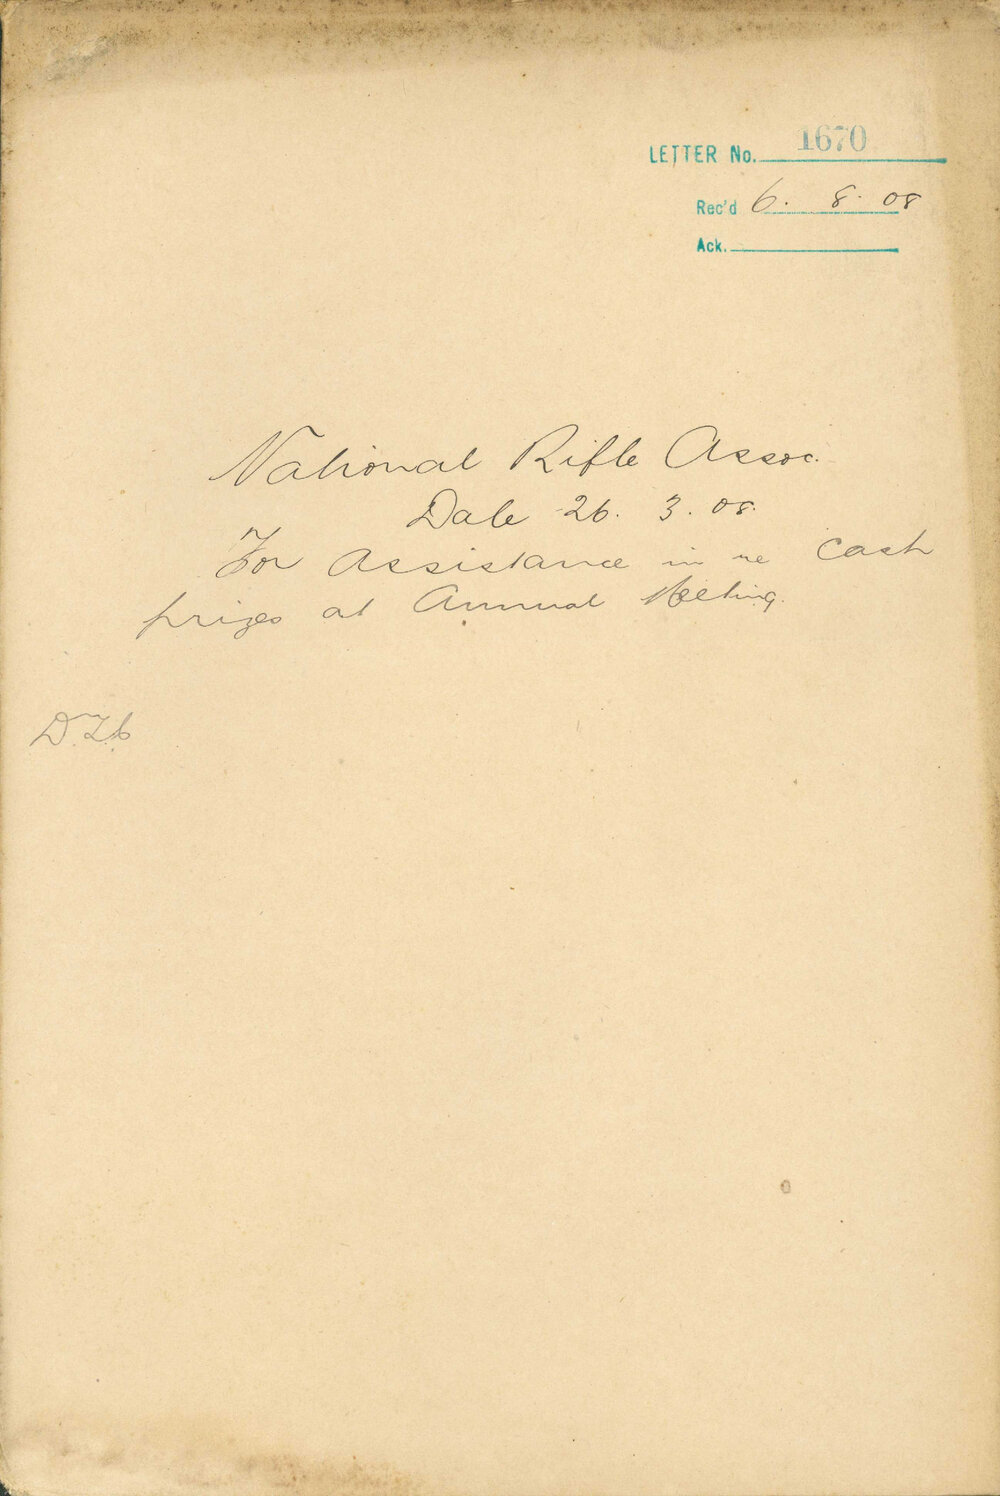 LETTER No. 1670
Rec'd 6. 8. 08
Ack.
National Rifle Assoc.
Date 26. 3. 08.
For assistance in re cash
prizes at Annual Meeting.